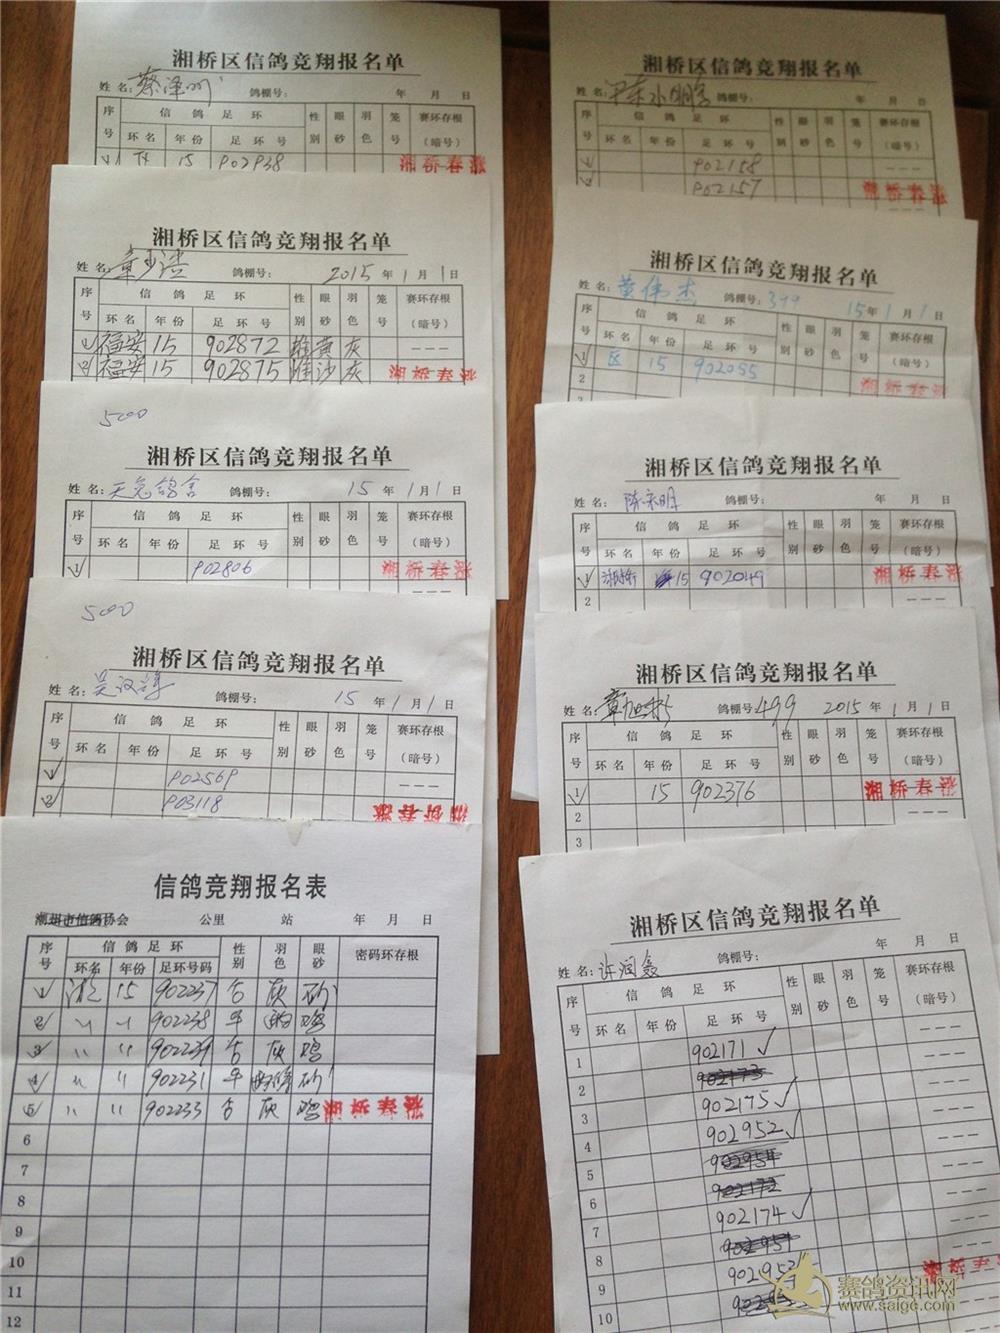 湘桥区信鸽竞翔报名单
姓名: 蔡泽 鸽棚号: 年 月 日
序号 信鸽足环 性别 眼砂 羽色 笼号 赛环存根(暗号)
环名 年份 足环号
1 15 902938 湘桥春涨
湘桥区信鸽竞翔报名单
姓名: 章 鸽棚号: 2015年1月1日
序号 信鸽足环 性别 眼砂 羽色 笼号 赛环存根(暗号)
环名 年份 足环号
1 福安 15 902872 雄 黄 灰 ---
2 福安 15 902875 雄 沙 灰
5000
湘桥区信鸽竞翔报名单
姓名: 天 鸽舍 鸽棚号: 15年1月1日
序号 信鸽足环 性别 眼砂 羽色 笼号 赛环存根(暗号)
环名 年份 足环号
1 902806 湘桥春涨
5000
湘桥区信鸽竞翔报名单
姓名: 吴汉 鸽棚号: 15年1月1日
序号 信鸽足环 性别 眼砂 羽色 笼号 赛环存根(暗号)
环名 年份 足环号
1 902569 ---
2 903118 湘桥春涨
信鸽竞翔报名表
潮州市信鸽协会 公里 站 年 月 日
序号 信鸽足环 性别 羽色 眼砂 密码环存根
环名 年份 足环号码
1 15 902237 灰 砂
2 〃 〃 902238 平 鸡
3 〃 〃 902239 灰 鸡
4 〃 〃 902231 平 砂
5 〃 〃 902233 灰 鸡 湘桥春涨
6
7
8
9
10
11
12
湘桥区信鸽竞翔报名单
姓名: 鸽棚号: 年 月 日
序号 信鸽足环 性别 眼砂 羽色 笼号 赛环存根(暗号)
环名 年份 足环号
1 902158 ---
2 902157 湘桥春涨
湘桥区信鸽竞翔报名单
姓名: 黄伟杰 鸽棚号: 399 15年1月1日
序号 信鸽足环 性别 眼砂 羽色 笼号 赛环存根(暗号)
环名 年份 足环号
1 区 15 902055 湘桥春涨
2
3
湘桥区信鸽竞翔报名单
姓名: 陈永明 鸽棚号: 年 月 日
序号 信鸽足环 性别 眼砂 羽色 笼号 赛环存根(暗号)
环名 年份 足环号
1 湘桥 15 902049 湘桥春涨
2 ---
湘桥区信鸽竞翔报名单
姓名: 章旭彬 鸽棚号 499 2015年1月1日
序号 信鸽足环 性别 眼砂 羽色 笼号 赛环存根(暗号)
环名 年份 足环号
1 15 902376 湘桥春涨
2 ---
3
湘桥区信鸽竞翔报名单
姓名: 许润 鸽棚号: 年 月 日
序号 信鸽足环 性别 眼砂 羽色 笼号 赛环存根(暗号)
环名 年份 足环号
1 902171 ✓ ---
2 902173 ---
3 902175 ✓ ---
4 902952 ✓ ---
5 902954 ---
6 902172 ---
7 902174 ✓ ---
8 902951 ---
9 902953 ✓
10
赛鸽资讯网
www.saige.com